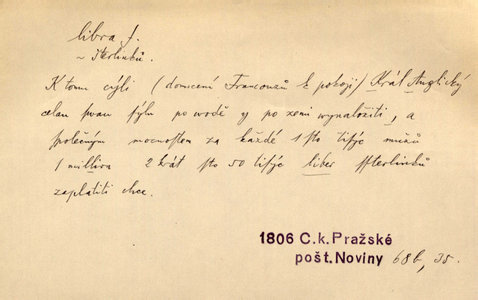 libra f.
~ Šterlinků.
K tomu cýli (donucení Francouzů k pokoji) Král Anglický
celau swau sýlu po wodě y po zemi wynaložiti, a
společným mocnostem za každé 1 sto tisýc mužů
1 million 2 krát sto 50 tisýc liber Šterlinků
zaplatiti chce.
1806 C.k.Pražské
pošt.Noviny 686, 35.